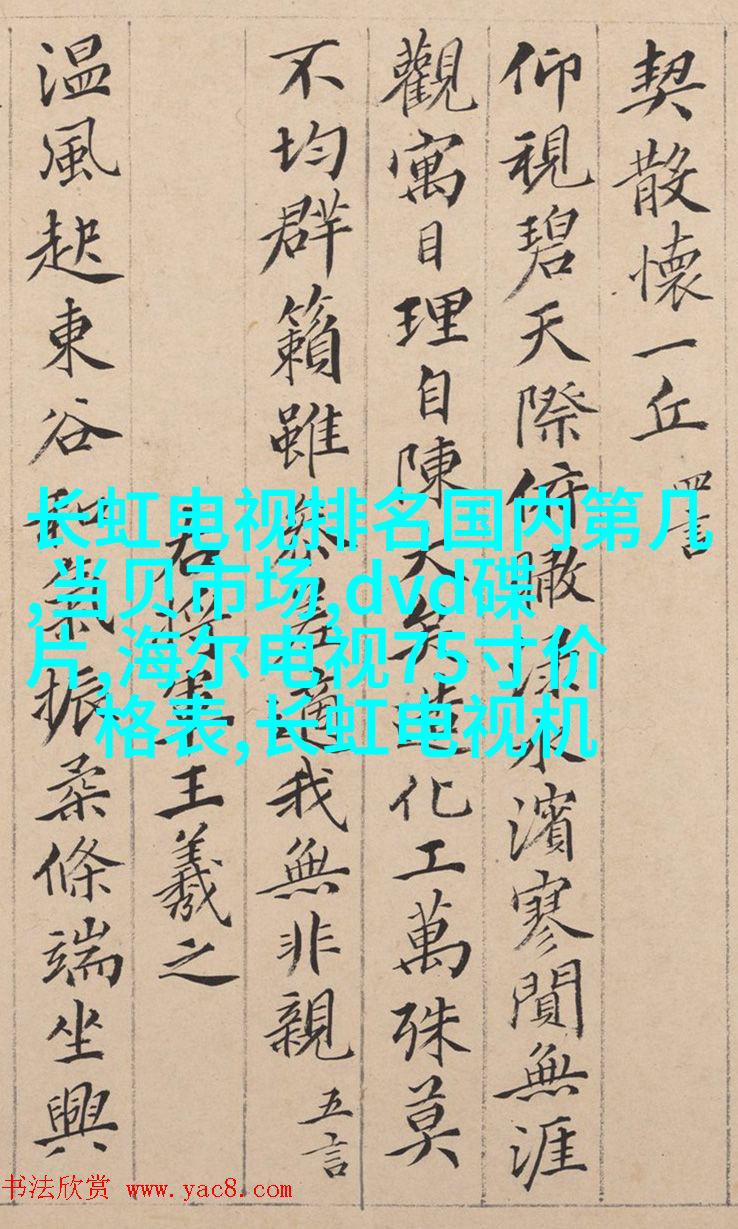 契散懷一丘 四言
仰視碧天際俯瞰淥水濱寥閴無涯
觀寓目理自陳大矣造化工萬殊莫
不均群籟雖參差適我無非親 五言
右將軍王羲之
温風起東谷和氣振柔條端坐興
长虹电视排名国内第几
,当贝市场,dvd碟
片,海尔电视75寸价
格表,长虹电视机
书法欣赏 www.yac8.com